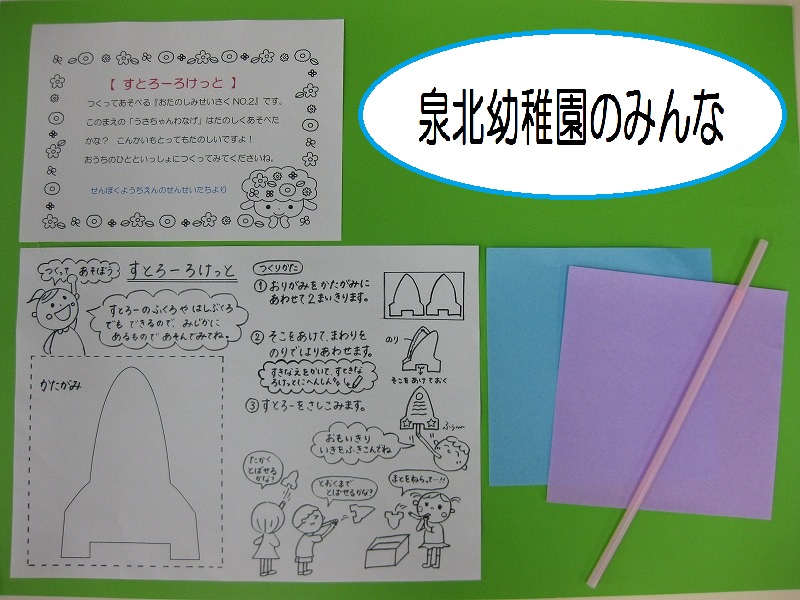 【 すとろーろけっと 】
つくってあそべる『おたのしみせいさく NO.2』です。
このまえの「うさちゃんわなげ」はたのしくあそべた
かな？ こんかいもとってもたのしいですよ！
おうちのひとといっしょにつくってみてくださいね。
せんぼくようちえんのせんせいたちより
泉北幼稚園のみんな
つくって あそぼう
すとろーろけっと
すとろーのふくろや はしぶくろ
でも できるので、みじかに
あるもので あそんでみてね。
かたがみ
つくりかた
① おりがみをかたがみに
あわせて2まいきります。
② そこをあけて、まわりを
のりではりあわせます。
すきなえをかいて、すてきな
ろけっとにへんしん。
のり
そこをあけておく
③ すとろーをさしこみます。
おもいきり
いきをふきこんでね
ふぅ〜
たかく
とばせる
かな？
とおくまで
とばせるかな？
まとをねらって〜!!